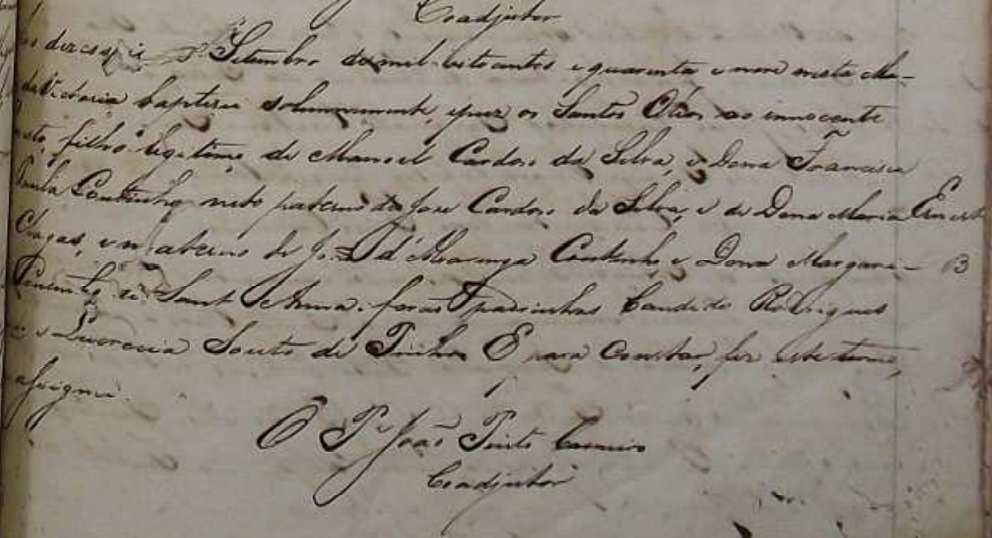 Coadjutor
Setembro de mil oitocentos e quarenta e nove nesta Ma-
da Victoria baptizei solemnemente, e puz os Santos Oleos ao innocente
filho legitimo de Manoel Cardoso da Silva, e Dona Francisca
Paula Coutinho, neto paterno de Jose Cardoso da Silva, e de Dona Maria
Ernesto
Chagas, e materno de d'Alvarenga Coutinho, e Dona Margari-
3
de Sant Anna. forão padrinhos Candido Rodrigues
e Lucrecia Souto de E para constar, fiz este termo,
assignei.
O Pe João Pinto Carneiro
Coadjutor